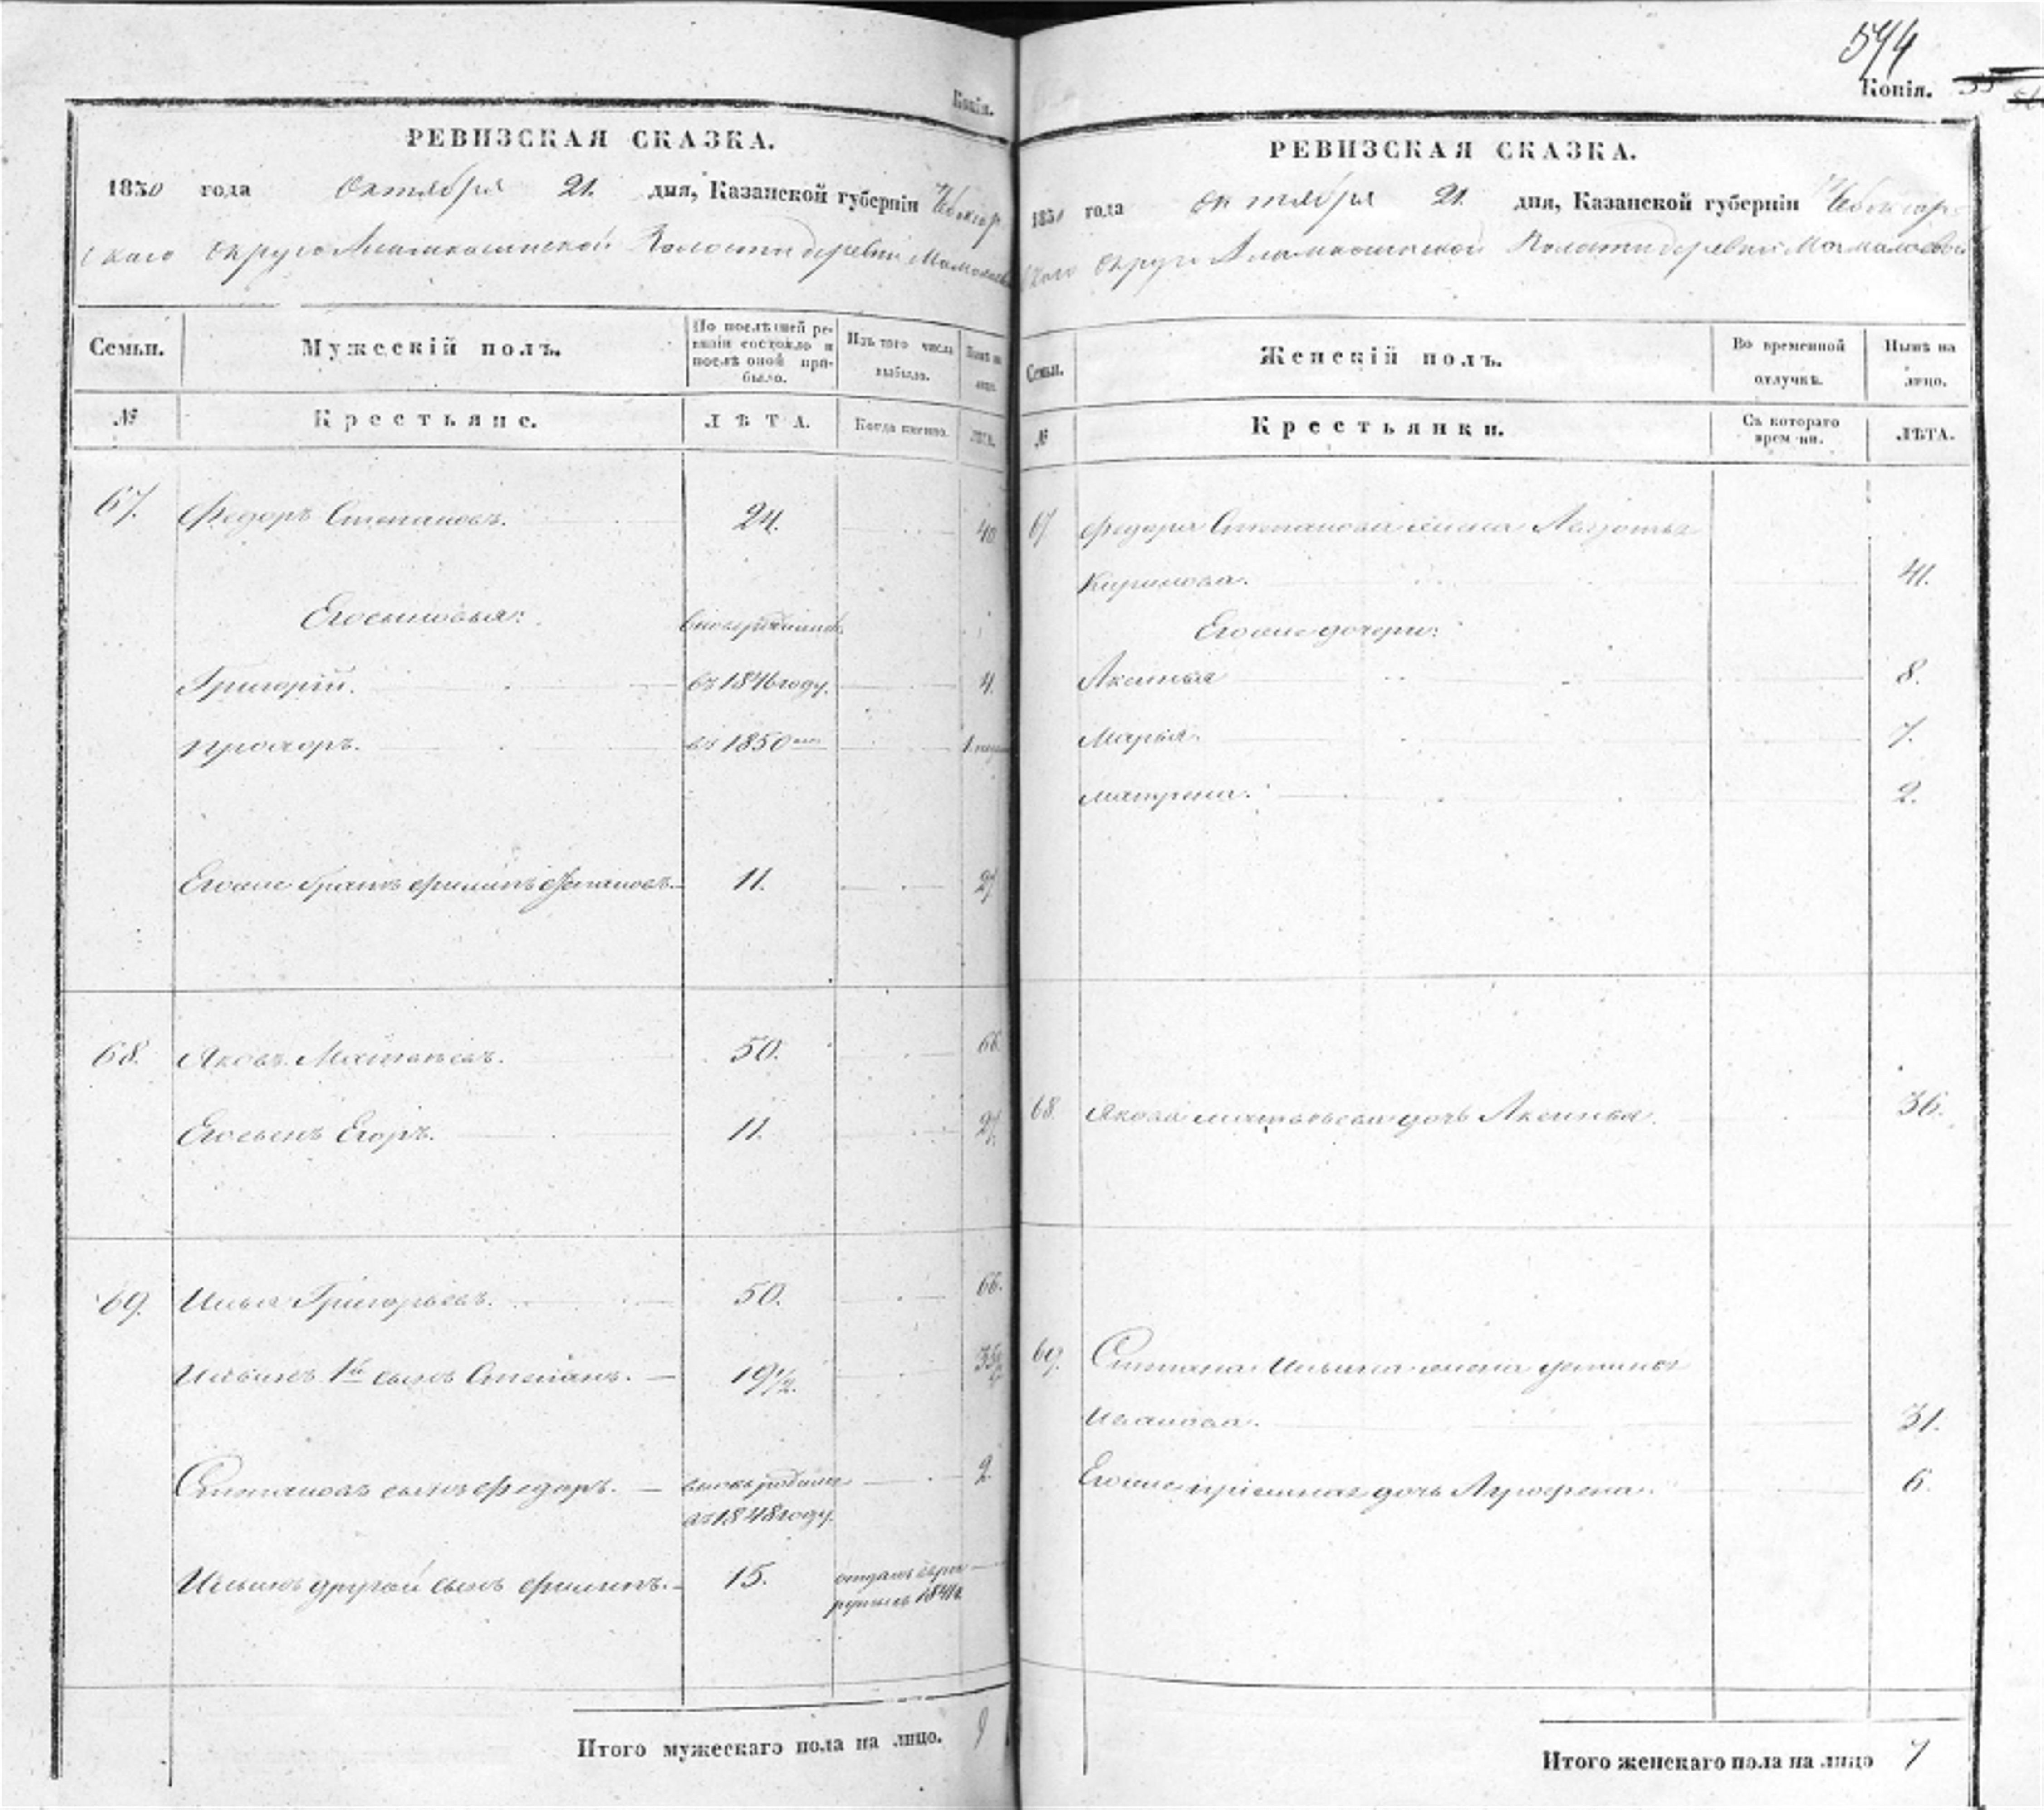 Копія.
РЕВИЗСКАЯ СКАЗКА.
1850 года Октября 21. дня, Казанской губерніи Чебоксар
скаго Округа Волости деревни
Семьи. Мужескій полъ. По послѣдней ре-
визіи состояло и
послѣ оной при-
было. Изъ того числа
выбыло. Нынѣ на
лицо.
№ Крестьяне. ЛѢТА. Когда именно. ЛѢТА.
67. Федоръ Степановъ. 24. 40
Его сыновья: вновь рожденный
Григорій. въ 1846 году. 4.
Прохоръ. въ 1850 1.
Его же братъ Филипъ Степановъ. 11. 27
68. Яковъ Матвѣевъ. 50. 66.
Его сынъ Егоръ. 11. 27.
69. Илья Григорьевъ. 50. 66.
Ильинъ 1й сынъ Степанъ. 19 1/2. 35
Степановъ сынъ Федоръ. вновь рожден 2.
въ 1848 году.
Ильинъ другой сынъ Филипъ. 15. отданъ въ ре
круты въ 1841
Итого мужескаго пола на лицо. 9
594
Копія.
РЕВИЗСКАЯ СКАЗКА.
1850 года Октября 21. дня, Казанской губерніи Чебоксар
скаго Округа Волости деревни
Семьи. Женскій полъ. Во временной
отлучкѣ. Нынѣ на
лицо.
№ Крестьянки. Съ котораго
времени. ЛѢТА.
67 Федора Степанова жена
Кирилова. 41.
Его же дочери:
Аксинья 8.
Марья. 7.
Матрена. 2.
68 Якова Матвѣева дочь Аксинья. 36.
69. Степана Ильина жена
Иванова. 31.
Его же пріемная дочь Аграфена. 6.
Итого женскаго пола на лицо 7